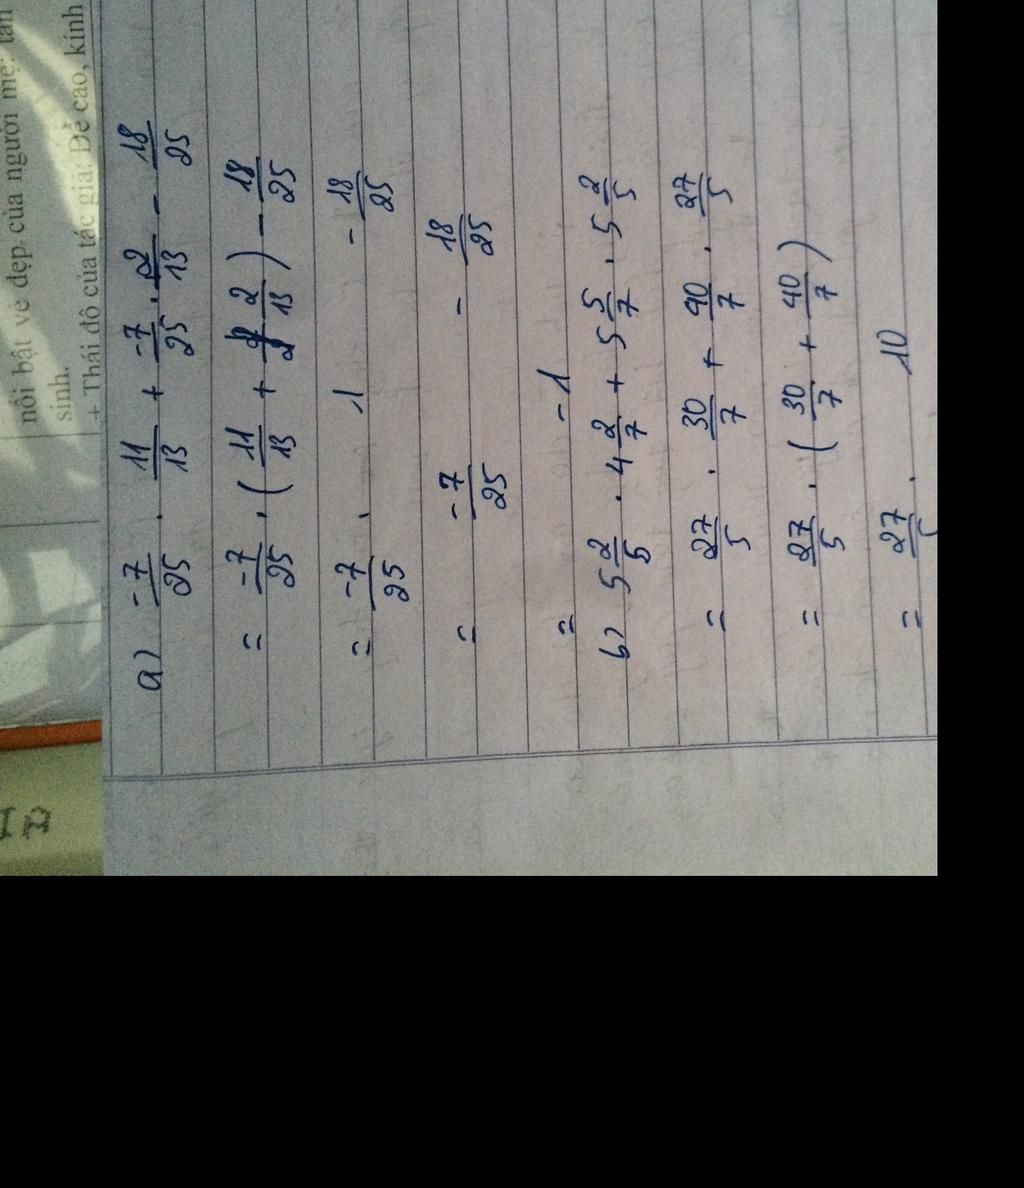 nổi bật vẻ đẹp của người mẹ: tần
sinh.
+ Thái độ của tác giả: Đề cao, kính
a) -7/25 . 11/13 + -7/25 . 2/13 - 18/25
= -7/25 . ( 11/13 + 2/13 ) - 18/25
= -7/25 . 1 - 18/25
= -7/25 - 18/25
= -1
b) 5 2/5 . 4 2/7 + 5 5/7 . 5 2/5
= 27/5 . 30/7 + 40/7 . 27/5
= 27/5 . ( 30/7 + 40/7 )
= 27/5 . 10